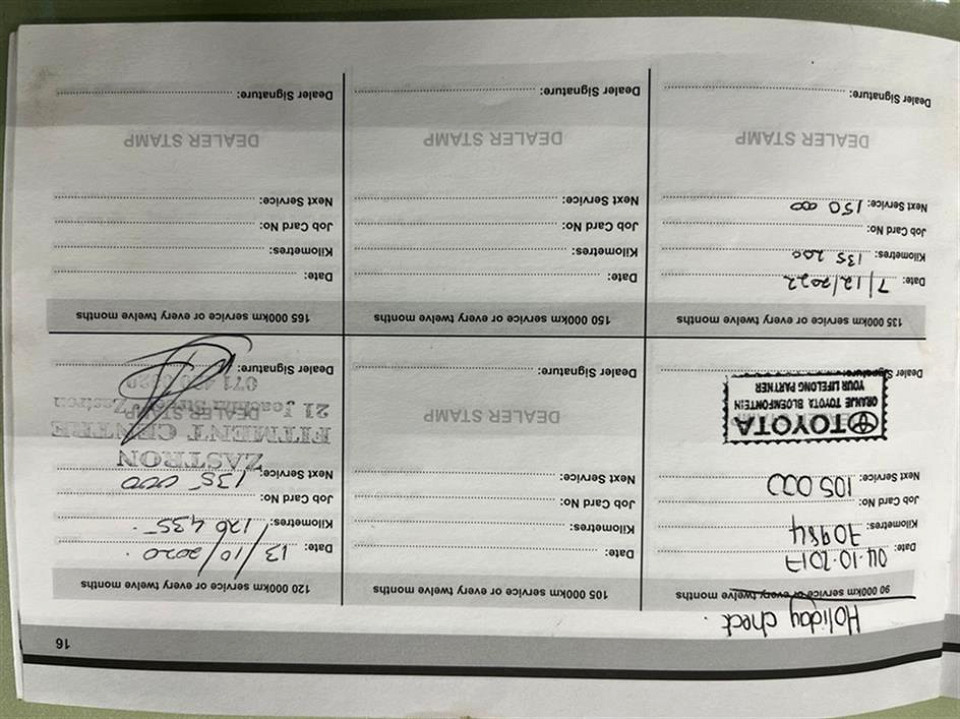 16
Holiday check.
90 000km service or every twelve months
Date: 04·10·2017
Kilometres: 70984
Job Card No:
Next Service: 105 000
TOYOTA
ORANJE TOYOTA BLOEMFONTEIN
YOUR LIFELONG PARTNER
Dealer Signature:
105 000km service or every twelve months
Date:
Kilometres:
Job Card No:
Next Service:
DEALER STAMP
Dealer Signature:
120 000km service or every twelve months
Date: 13/10/2020.
Kilometres: 126 435.
Job Card No:
Next Service: 135 000
ZASTRON
FITMENT CENTRE
DEALER STAMP
21 Joachim Street Zastron
071
Dealer Signature:
135 000km service or every twelve months
Date: 7/12/2022
Kilometres: 135 200
Job Card No:
Next Service: 150 000
DEALER STAMP
Dealer Signature:
150 000km service or every twelve months
Date:
Kilometres:
Job Card No:
Next Service:
DEALER STAMP
Dealer Signature:
165 000km service or every twelve months
Date:
Kilometres:
Job Card No:
Next Service:
DEALER STAMP
Dealer Signature: